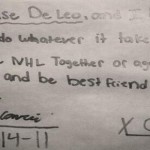 se De Leo, and I
do whatever it take
NHL Together or ag
and be best friend
X
14-11